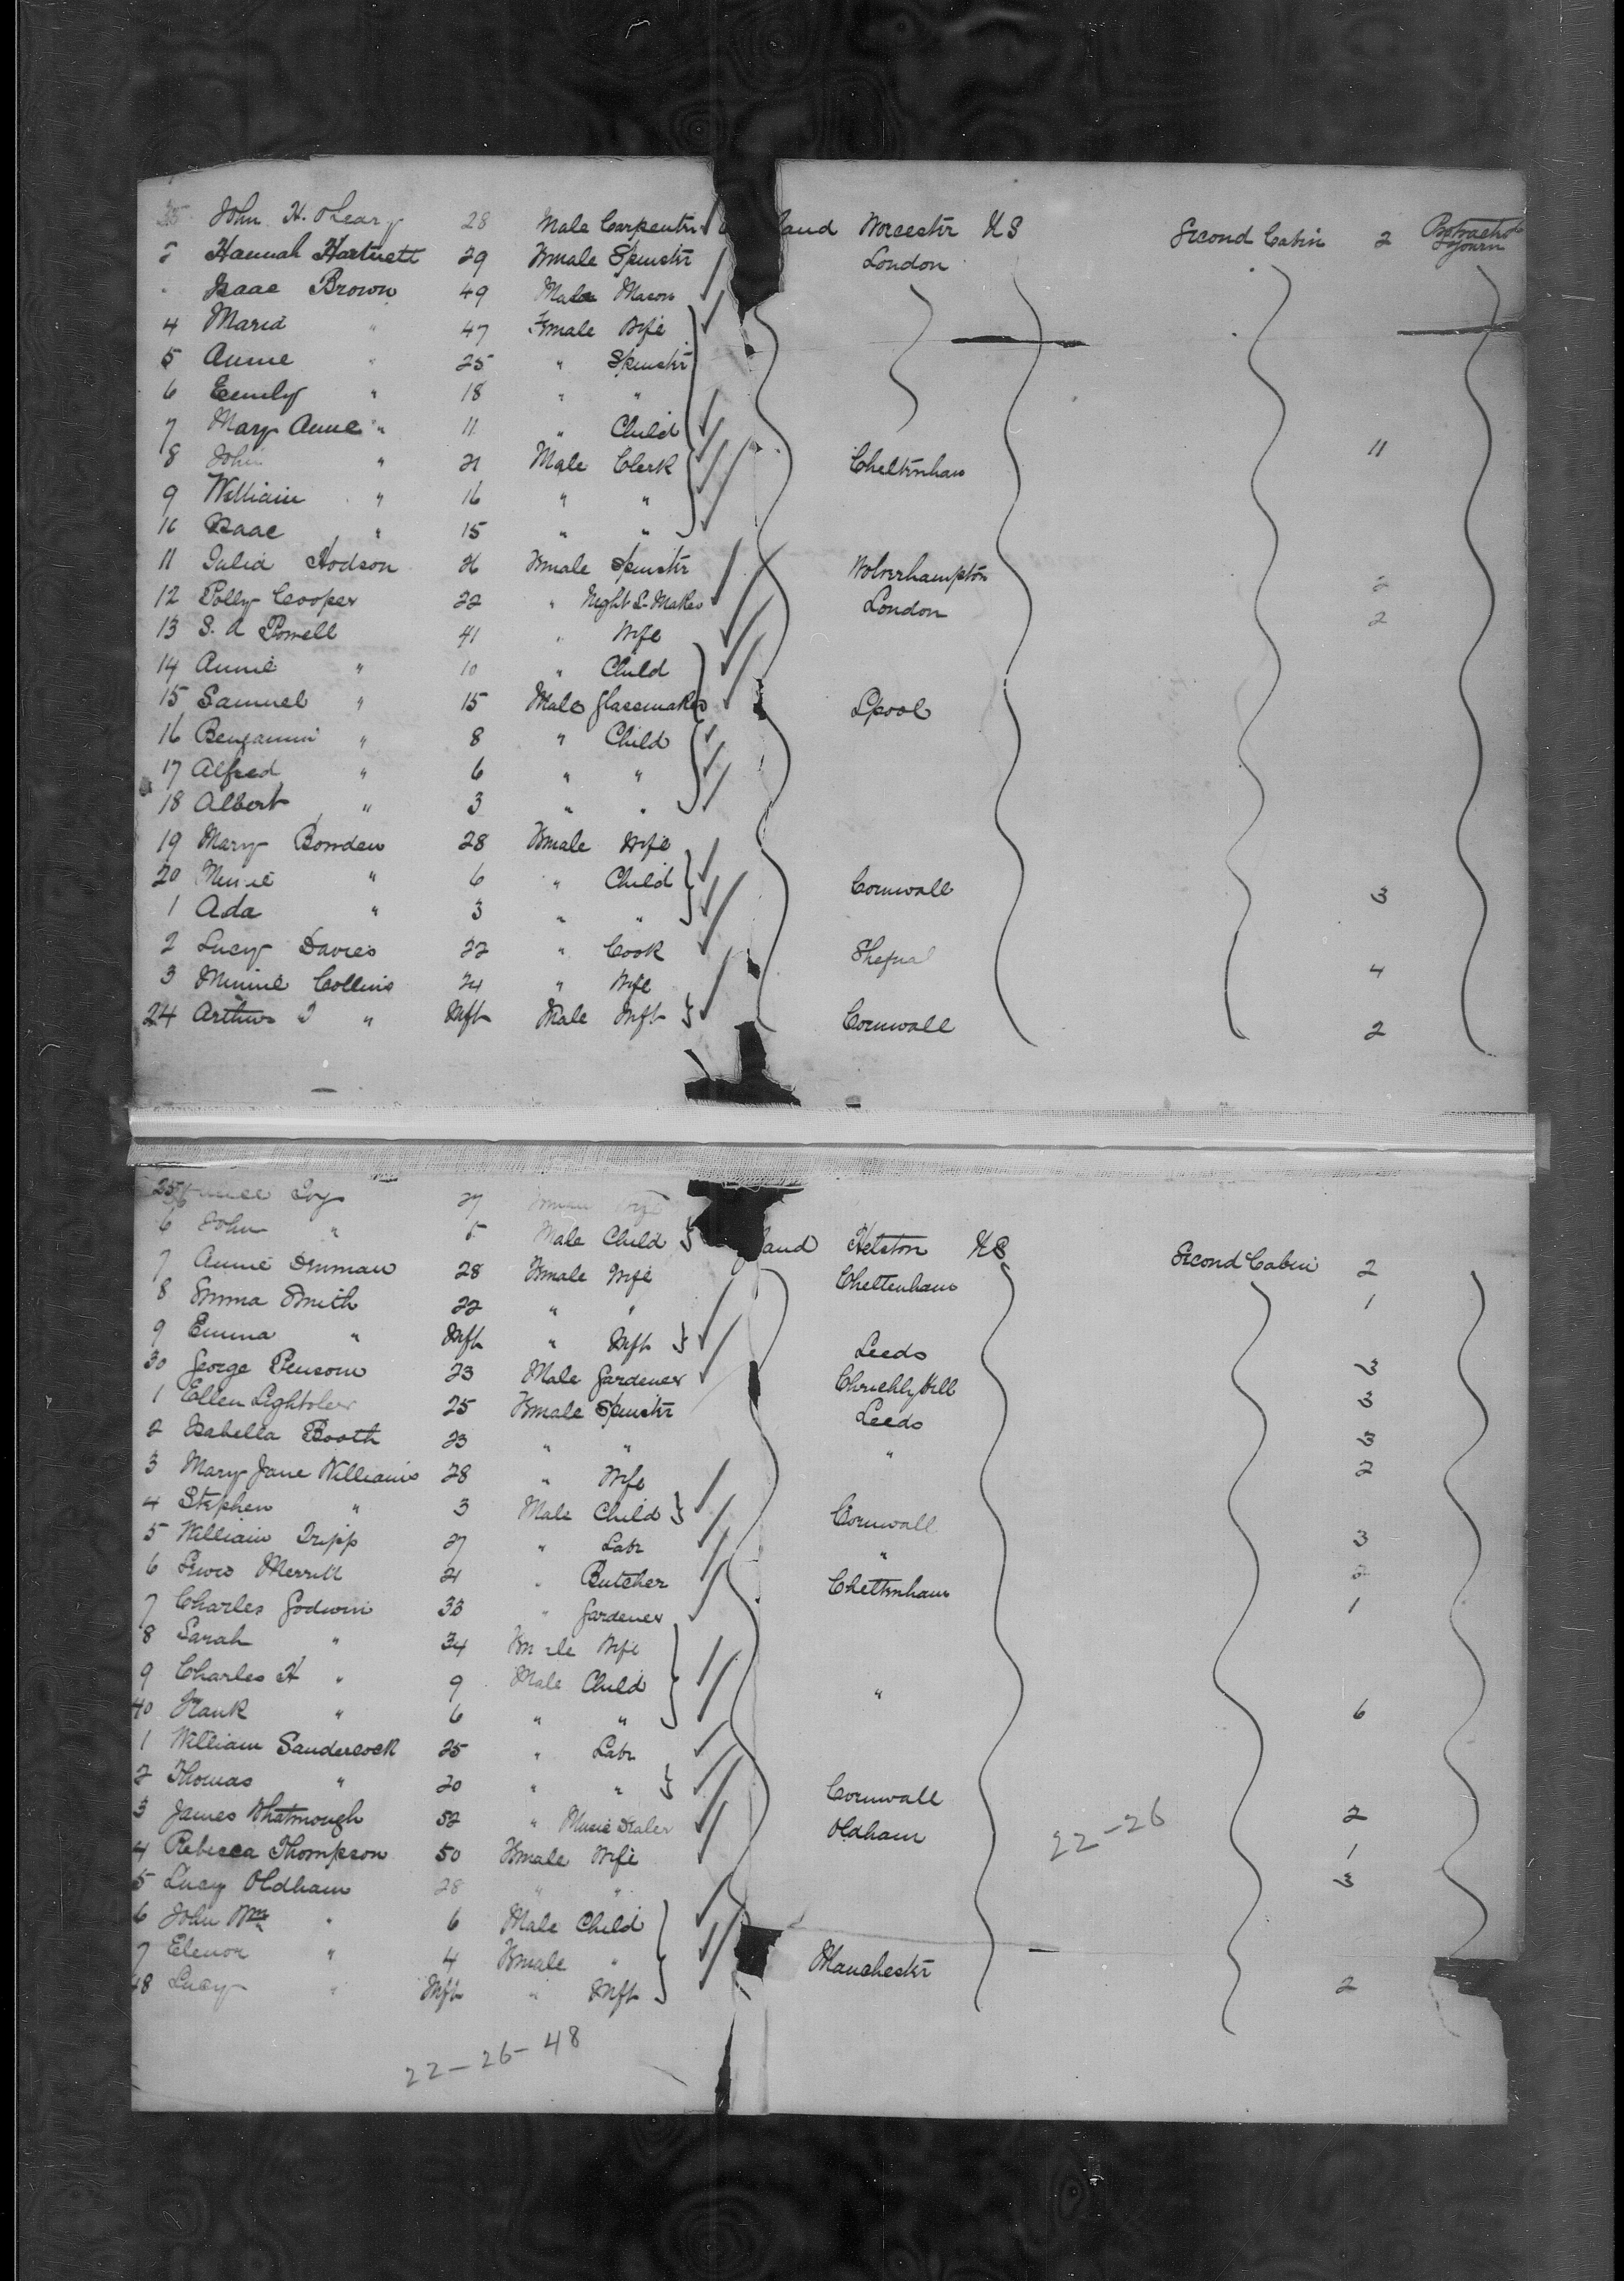 John H. O'Leary 28 Male Carpenter land Worcester US Second Cabin 2 Protracted Sojourn
2 Hannah Hartnett 29 Female Spinstr London
Isaac Brown 49 Male Mason
4 Maria " 47 Female Wife
5 Annie " 25 " Spinstr
6 Emily " 18 " "
7 Mary Anne " 11 " Child
8 John " 21 Male Clerk Cheltenham 11
9 William " 16 " "
10 Isaac " 15 " "
11 Julia Hodson 26 Female Spinstr Wolverhampton 2
12 Polly Cooper 22 " London 2
13 S. A Powell 41 " Wife
14 Annie " 10 " Child
15 Samuel " 15 Male Glassmaker Lpool
16 Benjamin " 8 " Child
17 Alfred " 6 " "
18 Albert " 3 " "
19 Mary Bowden 28 Female Wife
20 Minie " 6 " Child Cornwall 3
1 Ada " 3 " "
2 Lucy Davies 22 " Cook 4
3 Minnie Collins 24 " Wife
24 Arthur J " Inft Male Inft Cornwall 2
25 27
6 John " 5 Male Child land Helston US Second Cabin 2
7 Annie Inman 28 Female Wife Cheltenham 1
8 Emma Smith 22 " "
9 Emma " Inft " Inft Leeds 3
30 George Pensom 23 Male Gardener 3
1 Ellen Lightoler 25 Female Spinstr Leeds 3
2 Isabella Booth 23 " " " 2
3 Mary Jane Williams 28 " Wife
4 Stephen " 3 Male Child Cornwall 3
5 William Tripp 27 " Labr " 2
6 Merrill 21 " Butcher Cheltenham 1
7 Charles Godwin 33 " Gardener
8 Sarah " 34 Female Wife
9 Charles H " 9 Male Child
40 Frank " 6 " " " 6
1 William Sandercock 25 " Labr
2 Thomas " 20 " " Cornwall 2
3 James Whatmough 52 " Music Dealer Oldham 22-26 1
4 Rebecca Thompson 50 Female Wife 3
5 Lucy Oldham 28 " "
6 John Wm " 6 Male Child
7 Elenor " 4 Female " Manchestr
48 Lucy " Inft " Inft 2
22-26-48